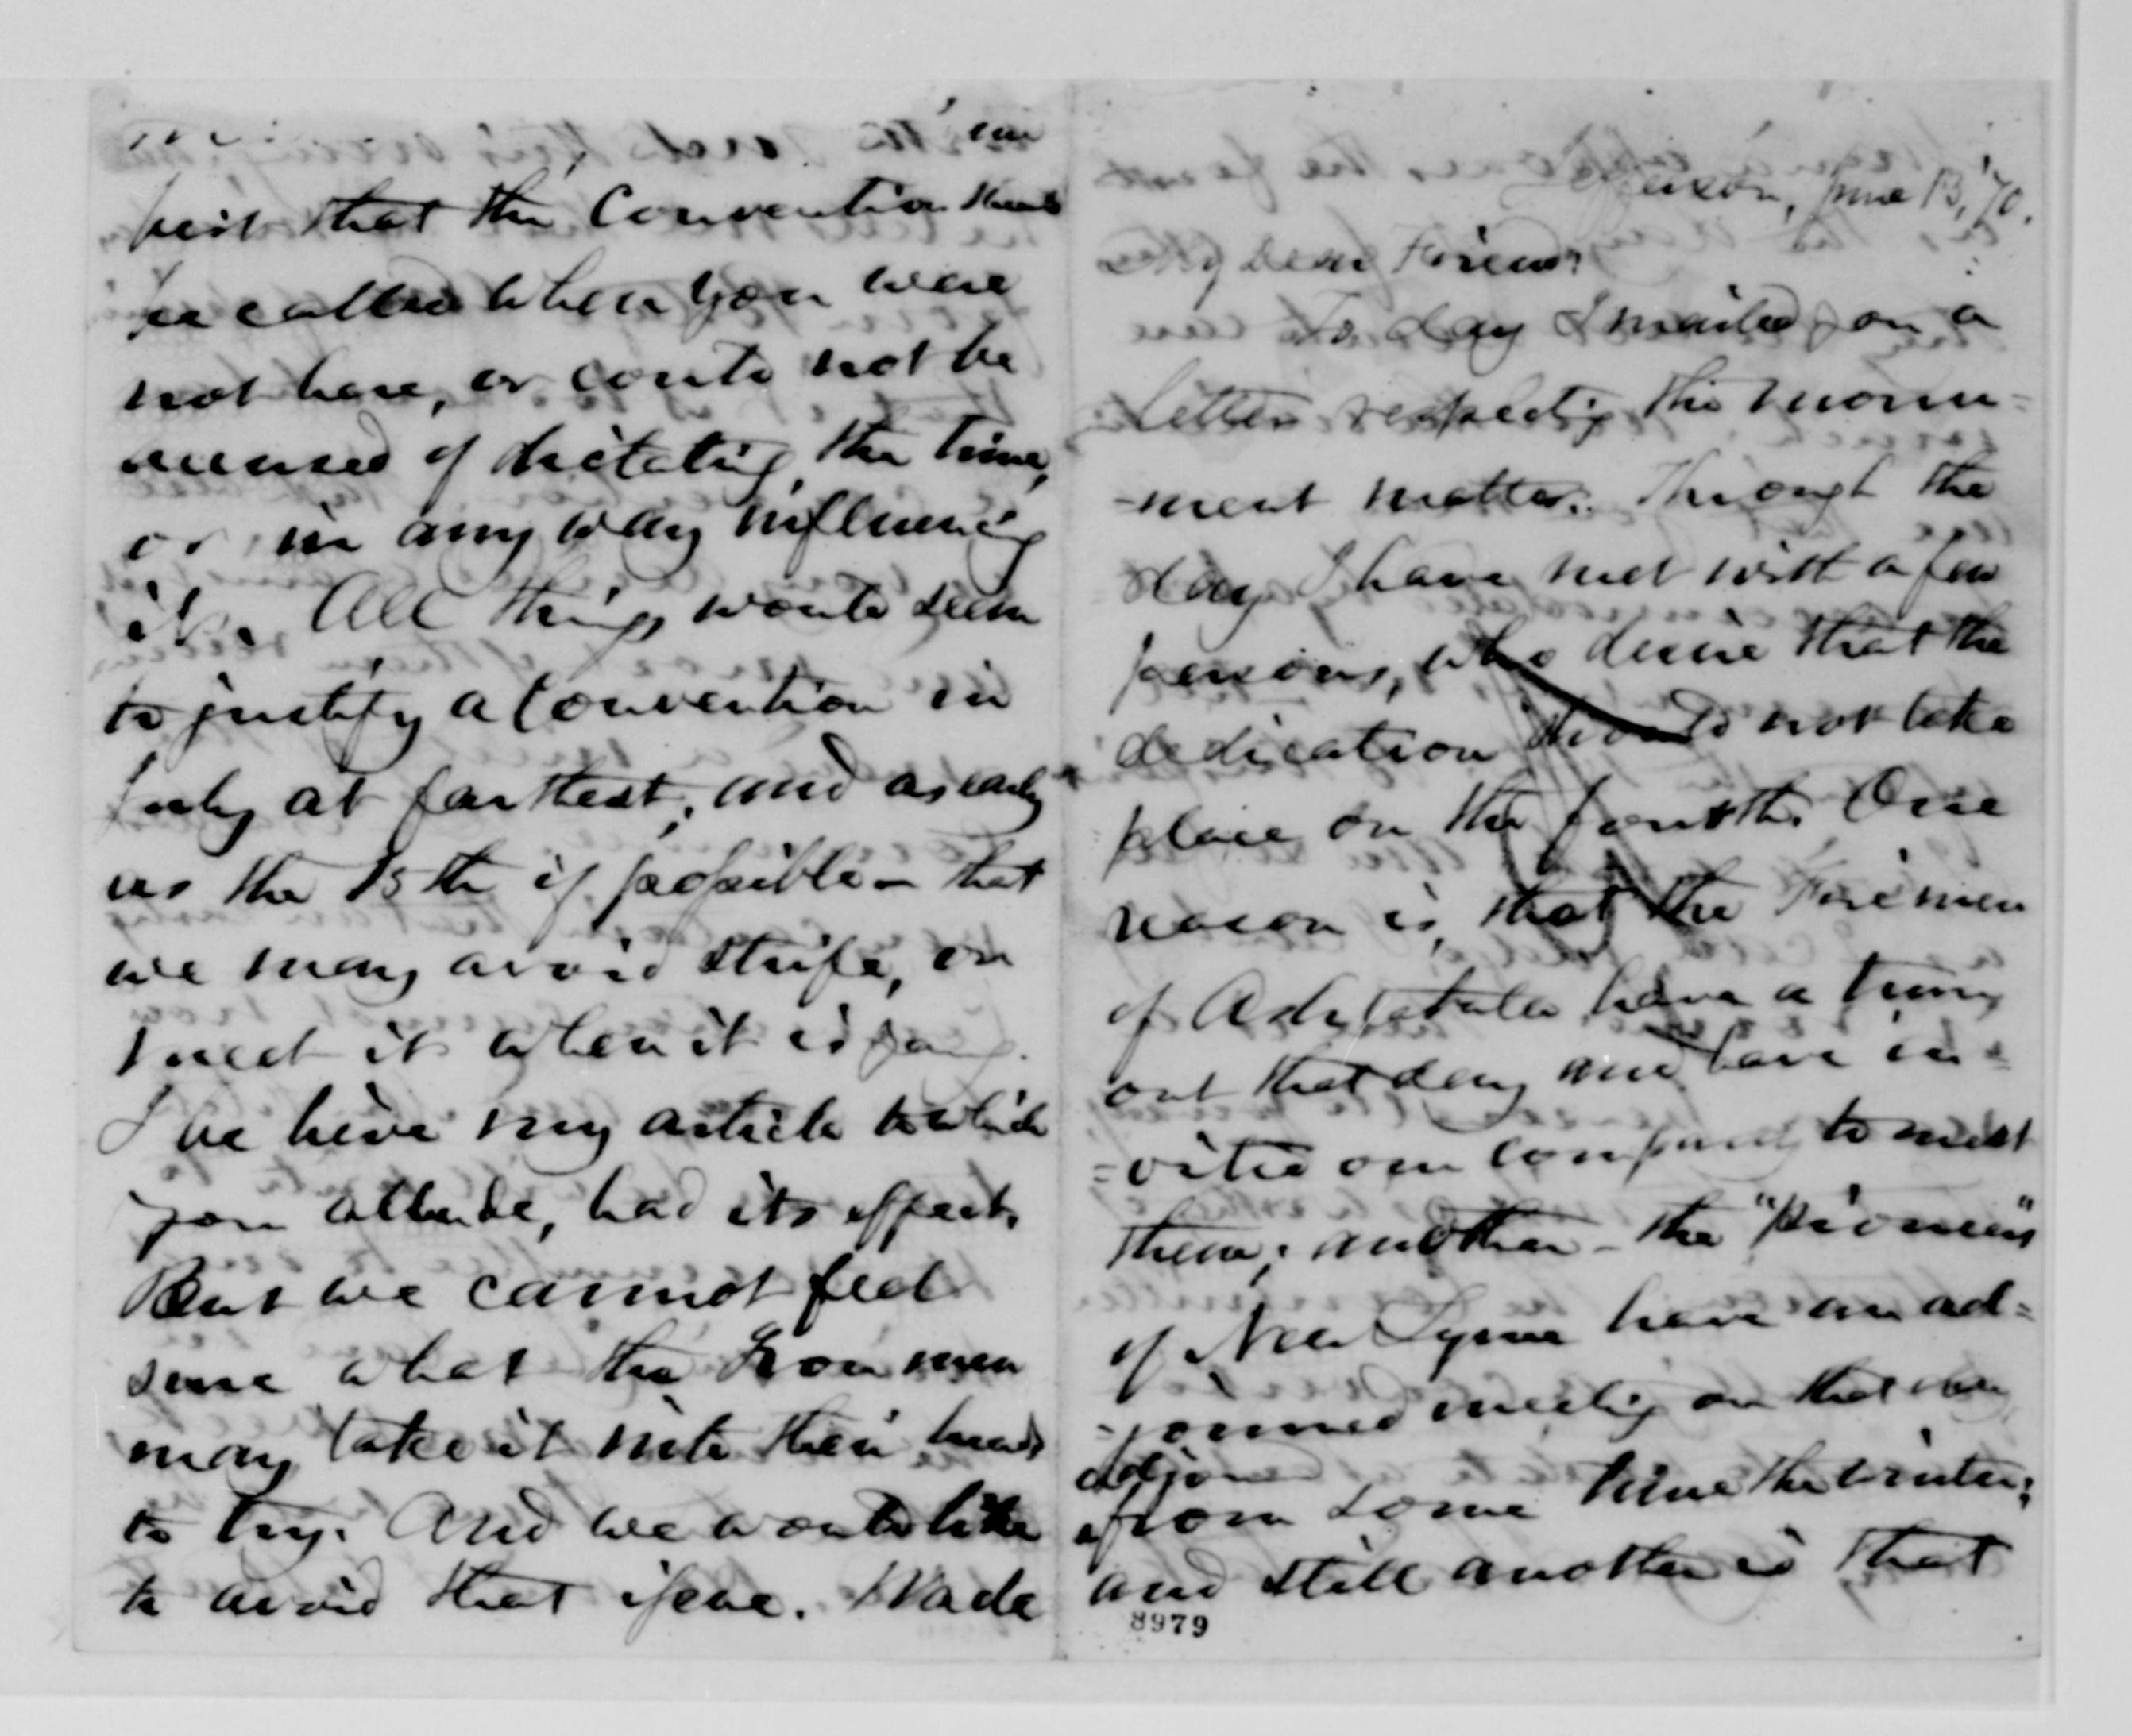 Jefferson, June 13, '70.
My Dear Friend:
To day I mailed you a
letter respecting the monu-
-ment matter. Through the
day I have met with a few
persons, who desire that the
dedication should not take
place on the fourth. One
reason is, that the Firemen
of Ashtabula have a turn
out that day and have in-
-vited our company to meet
them; another - the "Pioneers"
of New Lyme have an ad-
-journed meeting on that day
adjourned
from some time the winter;
and still another is that
8979
best that the Convention should
be called when you were
not here, or could not be
accused of dictating the time,
or in any way influencing
it. All things would seem
to justify a Convention in
July at farthest, and as early
as the 15th if possible - that
we may avoid strife, or
meet it when it is young.
I believe my article to which
you allude, had its effect.
But we cannot feel
sure what the Iron men
may take it into their heads
to try. And we would like
to avoid that issue. Wade